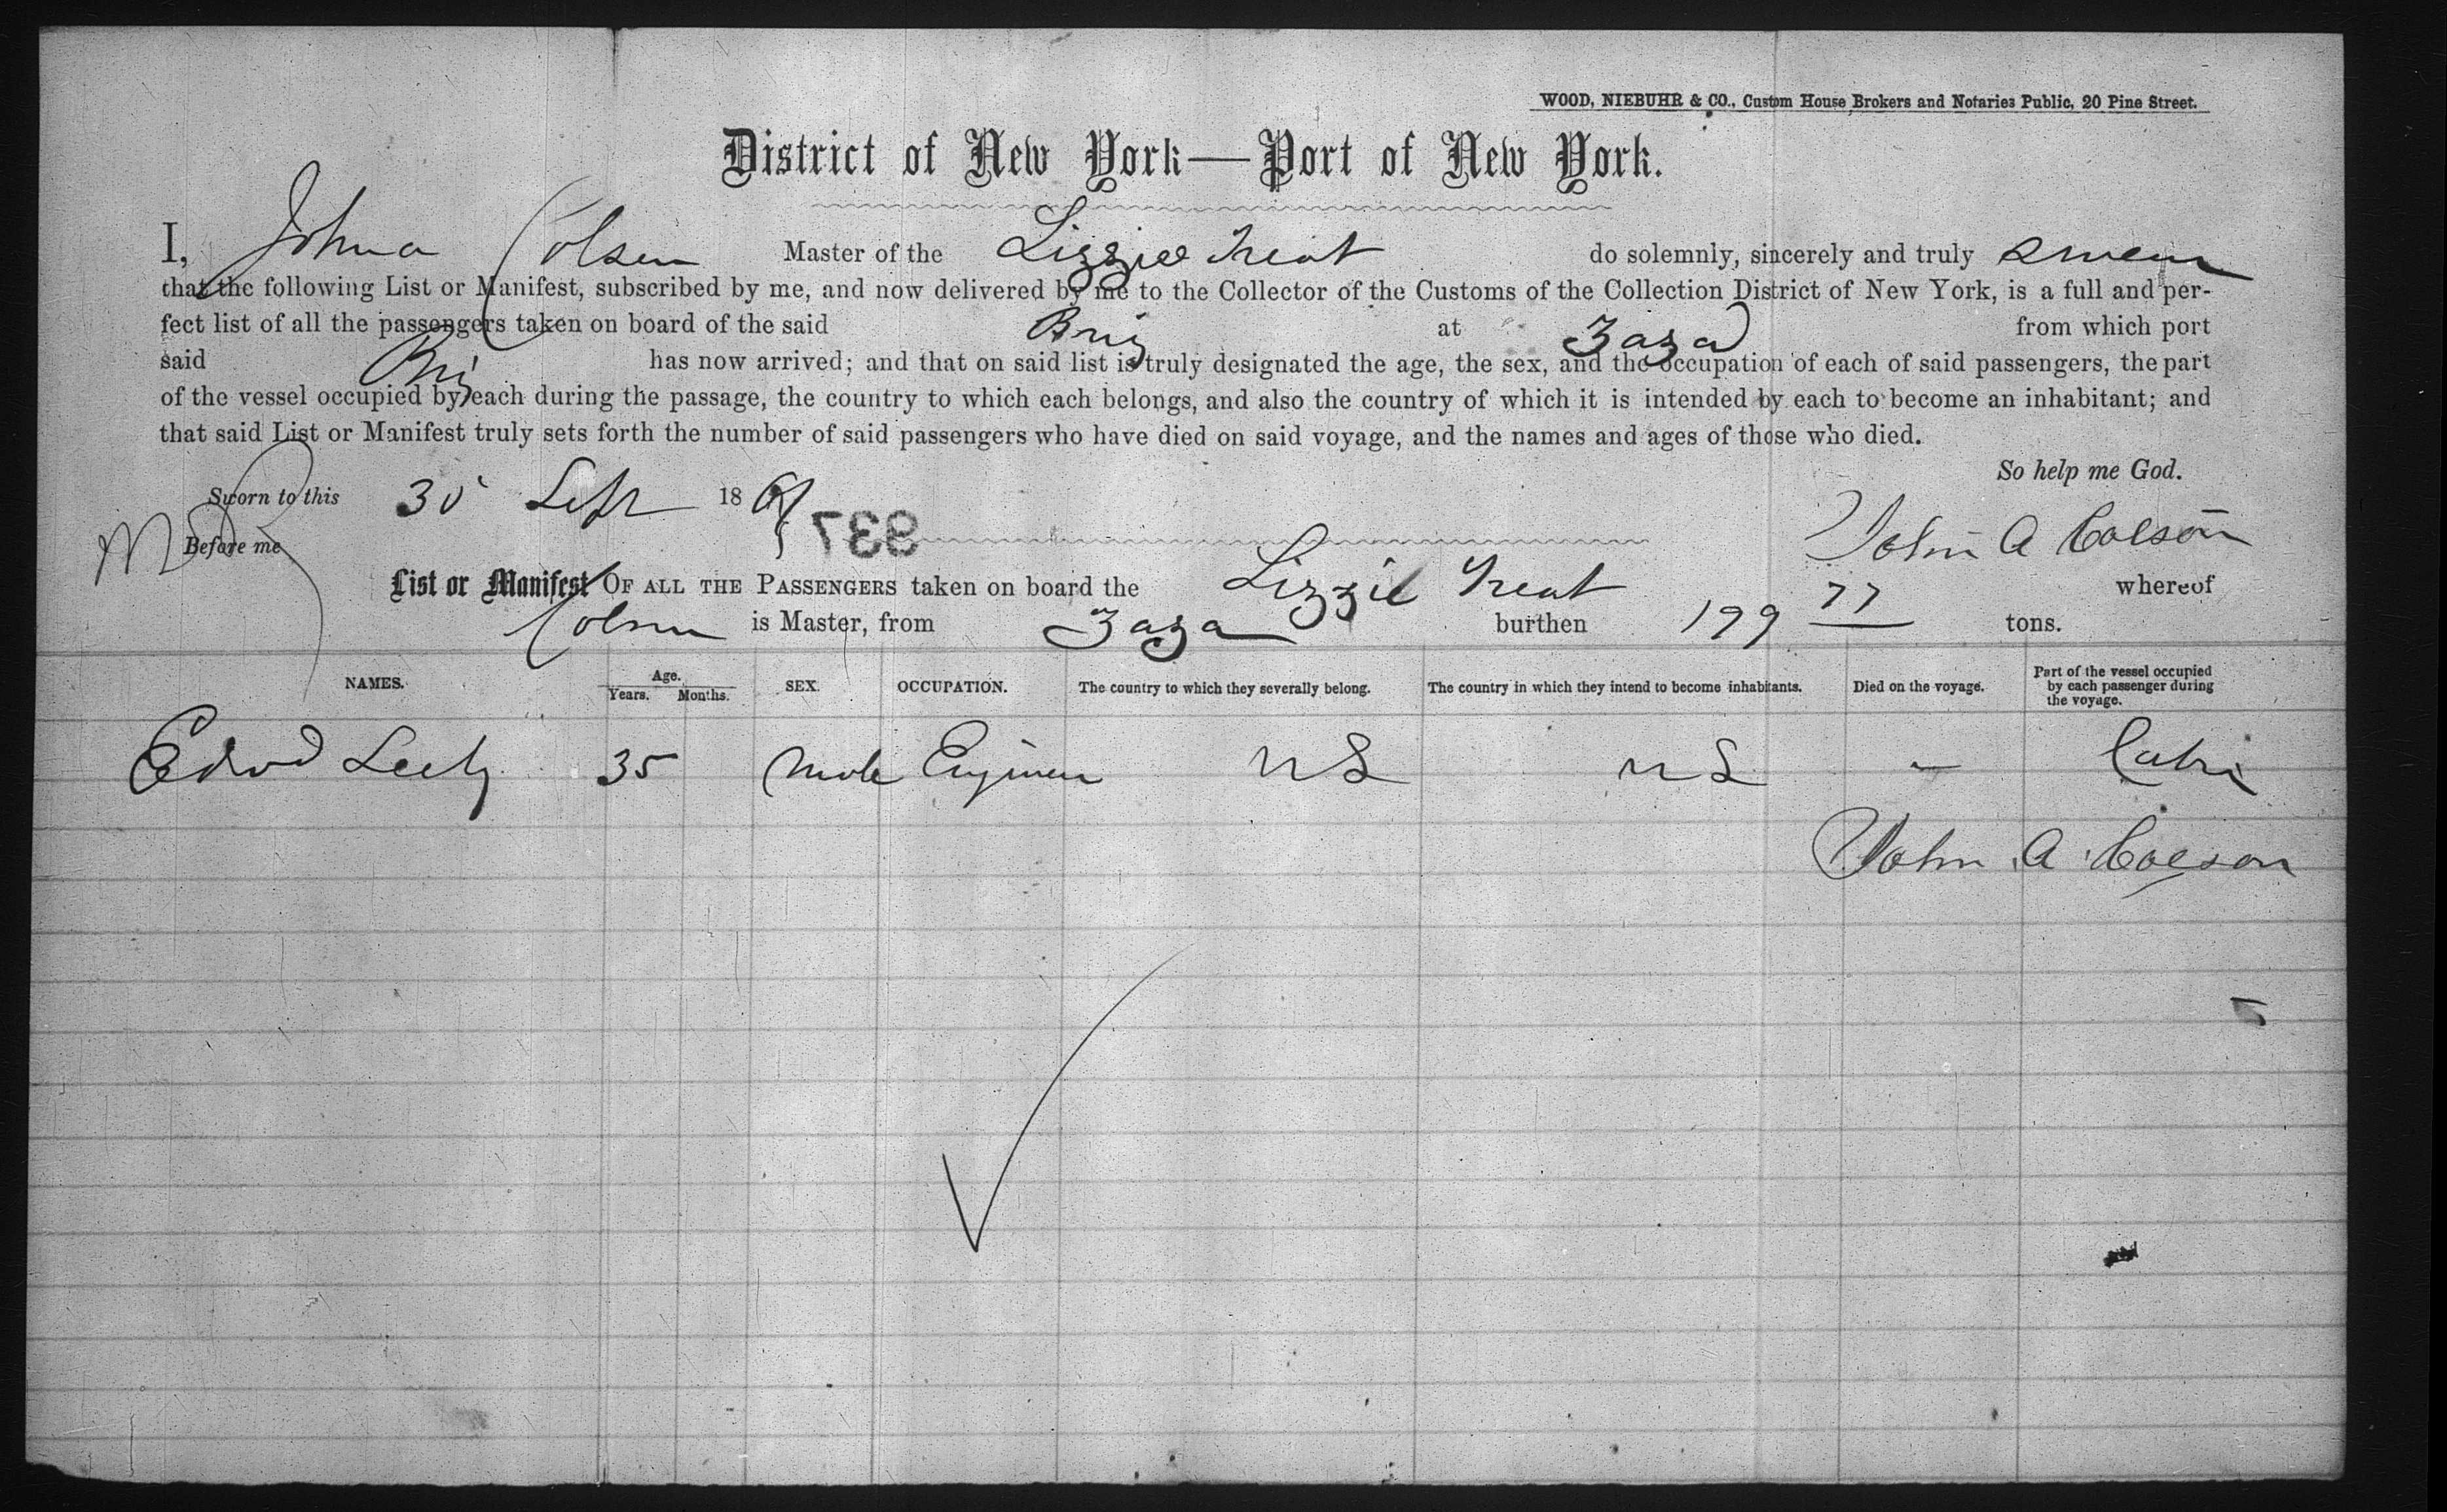 WOOD, NIEBUHR & CO., Custom House Brokers and Notaries Public, 20 Pine Street.
District of New York—Port of New York.
I, John a Colsen Master of the Lizzie Treat do solemnly, sincerely and truly swear
that the following List or Manifest, subscribed by me, and now delivered by me to the Collector of the Customs of the Collection District of New York, is a full and per-
fect list of all the passengers taken on board of the said Brig at Zaza from which port
said Brig has now arrived; and that on said list is truly designated the age, the sex, and the occupation of each of said passengers, the part
of the vessel occupied by each during the passage, the country to which each belongs, and also the country of which it is intended by each to become an inhabitant; and
that said List or Manifest truly sets forth the number of said passengers who have died on said voyage, and the names and ages of those who died.
So help me God.
Sworn to this 30 Sept 18
937
Before me
John A Colson
List or Manifest OF ALL THE PASSENGERS taken on board the Lizzie Treat whereof
Colsen is Master, from Zaza burthen 199 77 tons.
NAMES. Age. Years. Months. SEX. OCCUPATION. The country to which they severally belong. The country in which they intend to become inhabitants. Died on the voyage. Part of the vessel occupied by each passenger during the voyage.
Edwd 35 Male Engineer US US - Cabin
John A Colson